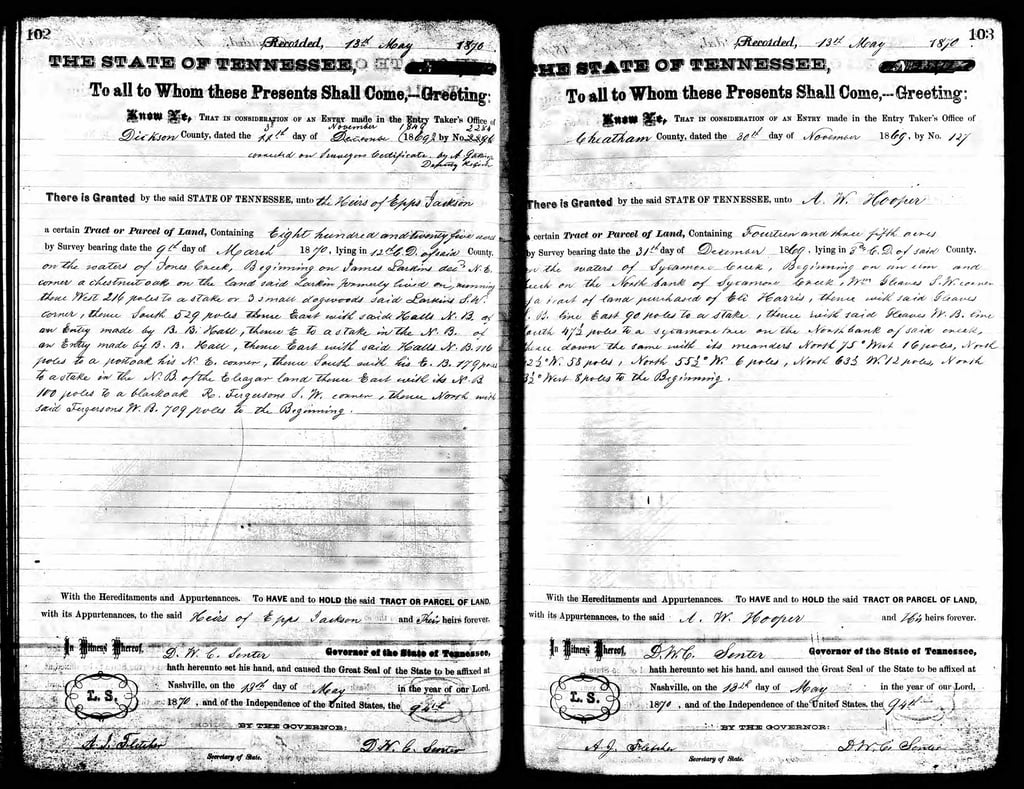 102
Recorded, 13th May 1870
THE STATE OF TENNESSEE,
To all to Whom these Presents Shall Come,—Greeting:
Know Ye, THAT IN CONSIDERATION OF AN ENTRY made in the Entry Taker's Office of
November 1846 2286
Dickson County, dated the day of December (1869) by No. 2296
corrected on Surveyors Certificate. by A.
Deputy
There is Granted by the said STATE OF TENNESSEE, unto the Heirs of Epps Jackson
a certain Tract or Parcel of Land, Containing Eight hundred and twenty five acres
by Survey bearing date the 9th day of March 1870, lying in 12th C.D. of said County.
on the waters of Jones Creek, Beginning on James Larkins decd N.E.
corner a chestnut oak on the land said Larkin formerly lived on, running
thence West 216 poles to a stake or 3 small dogwoods said Larkins S.W.
corner, thence South 529 poles thence East with said Halls N.B. of
an Entry made by B.B. Hall, thence E to a stake in the N.B. of
an Entry made by B.B. Hall, thence East with said Halls N.B. 116
poles to a postoak his N.E. corner, thence South with his E.B. 179 poles
to a stake in the N.B. of the Eleazar land thence East with its N.B
100 poles to a blackoak R. Fergusons S. corner, thence North with
said Fergersons W.B. 709 poles to the Beginning.
With the Hereditaments and Appurtenances. To HAVE and to HOLD the said TRACT OR PARCEL OF LAND,
with its Appurtenances, to the said Heirs of Epps Jackson and Their heirs forever.
In Witness Whereof, D. W. C. Senter Governor of the State of Tennessee,
hath hereunto set his hand, and caused the Great Seal of the State to be affixed at
Nashville, on the 13th day of May in the year of our Lord,
L. S.
1870, and of the Independence of the United States, the 94th
BY THE GOVERNOR:
A. J. Fletcher D. W. C. Senter
Secretary of State.
103
Recorded, 13th May 1870
THE STATE OF TENNESSEE,
To all to Whom these Presents Shall Come,—Greeting:
Know Ye, THAT IN CONSIDERATION OF AN ENTRY made in the Entry Taker's Office of
Cheatham County, dated the 30th day of November 1869, by No. 127
There is Granted by the said STATE OF TENNESSEE, unto A. W. Hooper
a certain Tract or Parcel of Land, Containing Fourteen and three fifth acres
by Survey bearing date the 31st day of December 1869, lying in 3rd C.D. of said County.
on the waters of Sycamore Creek, Beginning on an elm and
beech on the North bank of Sycamore Creek, Wm Gleaves S.W. corner
of a tract of land purchased of Eli Harris, thence with said Gleaves
S.B. line East 90 poles to a stake, thence with said Gleaves W.B. line
South 47½ poles to a sycamore tree on the North bank of said creek,
thence down the same with its meanders North 75° West 16 poles, North
½° W. 58 poles, North 55½° W 6 poles, North 63½ W. 12 poles, North
½° West 8 poles to the Beginning.
With the Hereditaments and Appurtenances. To HAVE and to HOLD the said TRACT OR PARCEL OF LAND,
with its Appurtenances, to the said A. W. Hooper and His heirs forever.
In Witness Whereof, D. W. C. Senter Governor of the State of Tennessee,
hath hereunto set his hand, and caused the Great Seal of the State to be affixed at
Nashville, on the 13th day of May in the year of our Lord,
L. S.
1870, and of the Independence of the United States, the 94th
BY THE GOVERNOR:
A. J. Fletcher D. W. C. Senter
Secretary of State.